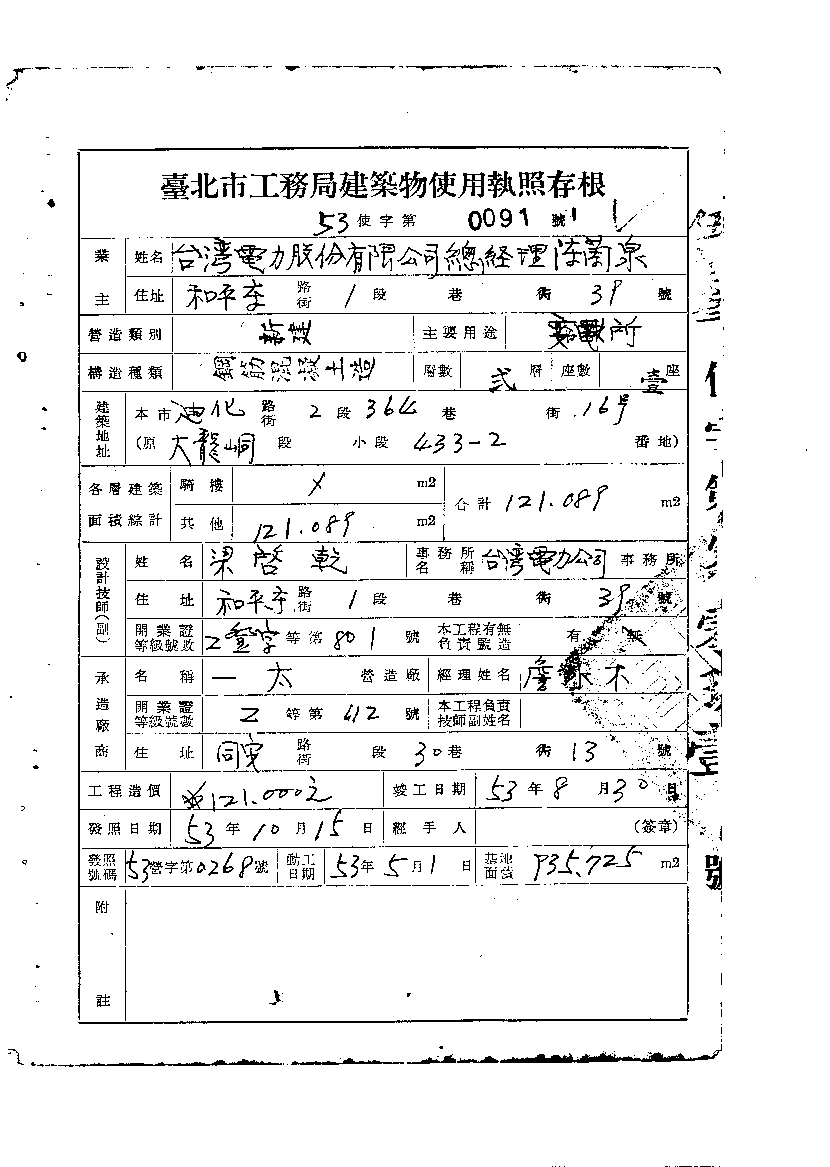 臺北市工務局建築物使用執照存根
53 使字第 0091 號
業主 姓名 台湾電力股份有限公司總經理 陳蘭泉
住址 和平東 路街 1 段 巷 街 39 號
營造類別 新建 主要用途 變電所
構造種類 鋼筋混凝土造 層數 弍 層 座數 壹 座
建築地址 本市 迪化 路街 2 段 364 巷 街 16号
(原 大龍峒 段 小段 433-2 番地)
各層建築面積綜計 騎樓 m2 合計 121.089 m2
其他 121.089 m2
設計技師(副) 姓名 梁啓乾 事務所名稱 台湾電力公司 事務所
住址 和平东 路街 1 段 巷 街 39 號
開業證等級號數 等第 801 號 本工程有無負責監造 有 無
承造廠商 名稱 一太 營造廠 經理姓名 木
開業證等級號數 乙 等第 412 號 本工程負責技師副姓名
住址 路街 段 30 巷 街 13 號
工程造價 121.000 竣工日期 53 年 8 月 30 日
發照日期 53 年 10 月 15 日 經手人 (簽章)
發照號碼 53 營字第 0268 號 動工日期 53 年 5 月 1 日 基地面積 935.725 m2
附註
號